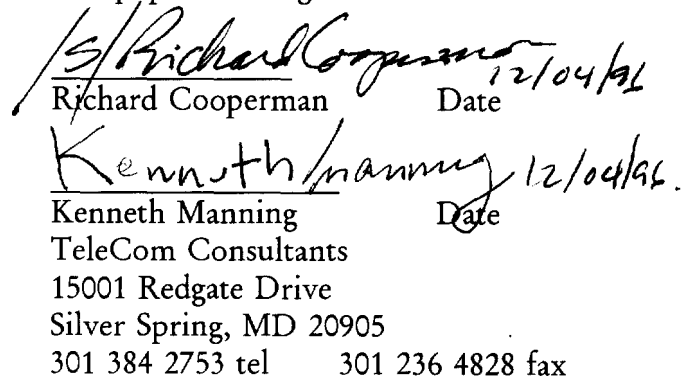 /s/ Richard Cooperman 12/04/96
Richard Cooperman Date
Kenneth Manning 12/04/96.
Kenneth Manning Date
TeleCom Consultants
15001 Redgate Drive
Silver Spring, MD 20905
301 384 2753 tel 301 236 4828 fax